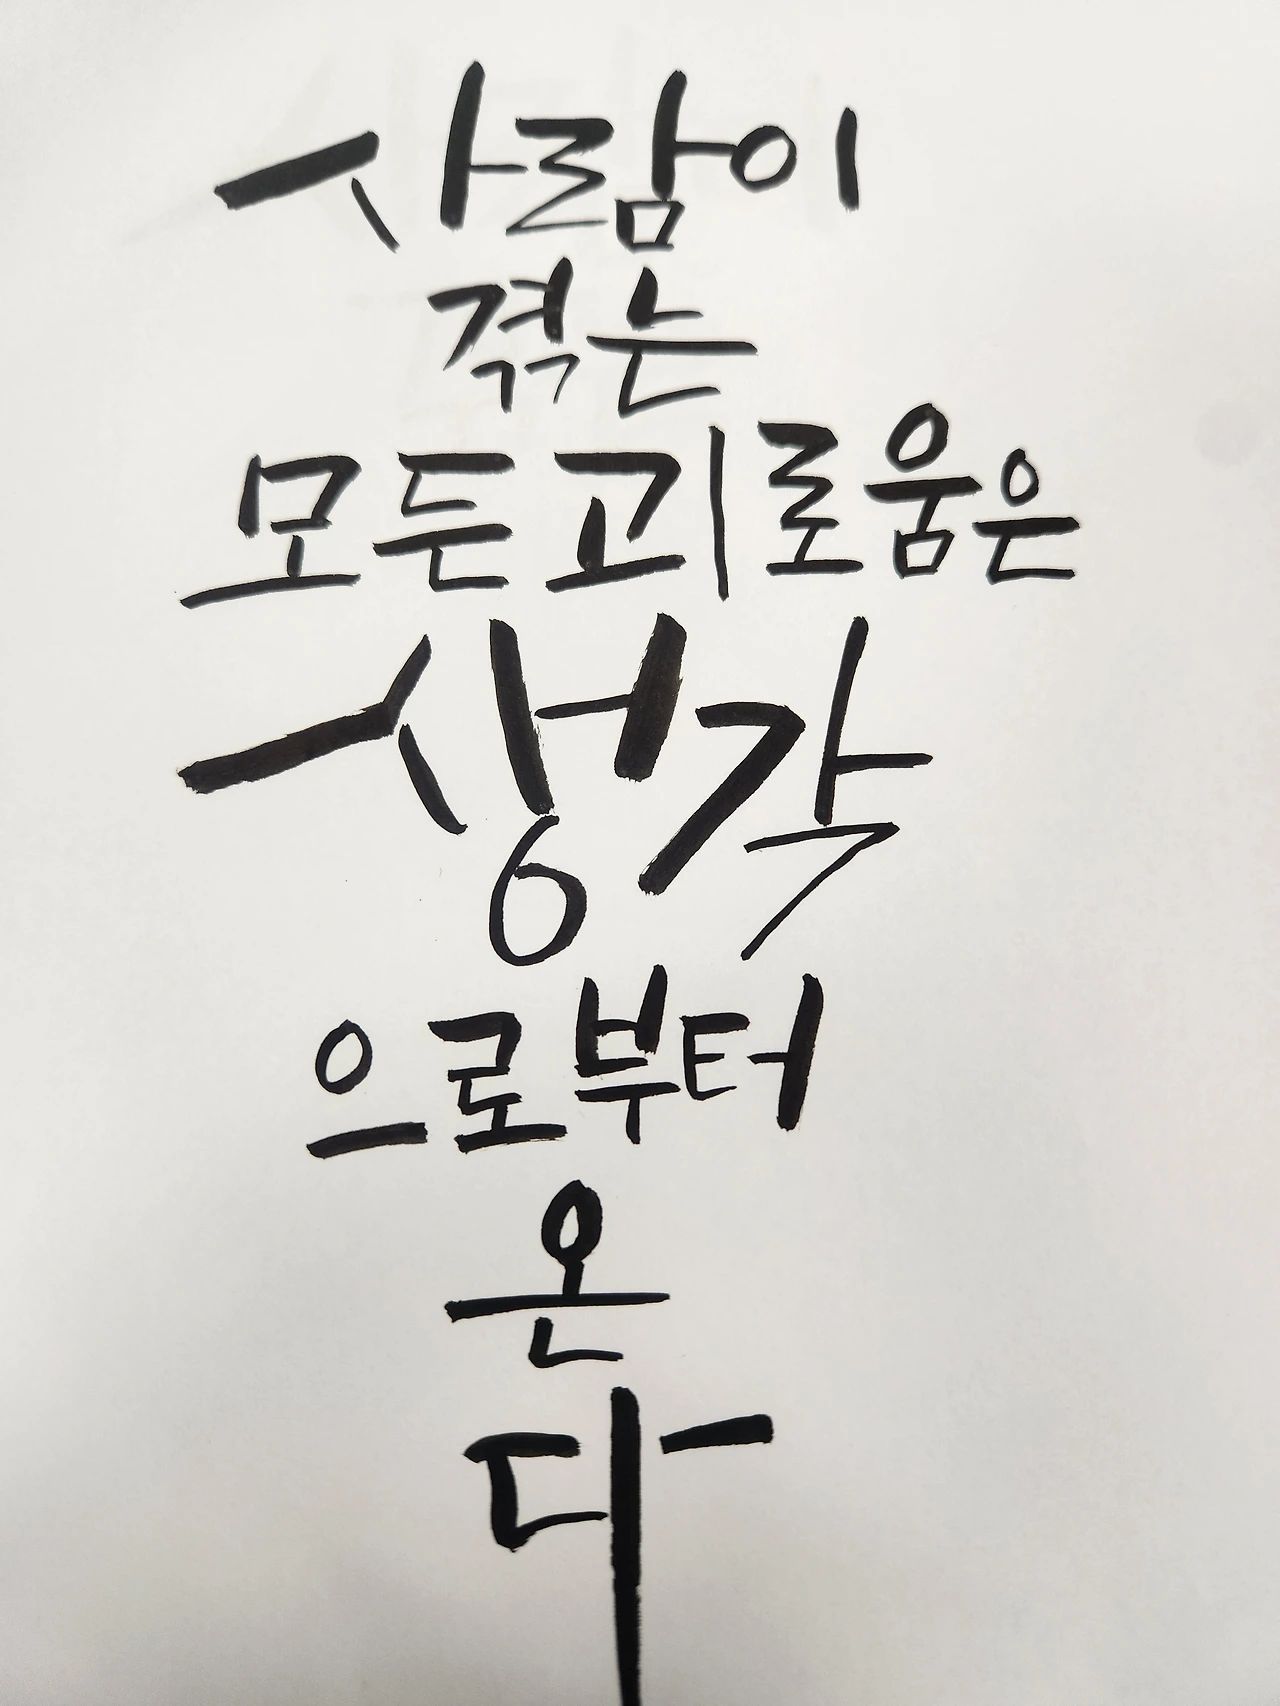 사람이
겪는
모든 괴로움은
생각
으로부터
온
다